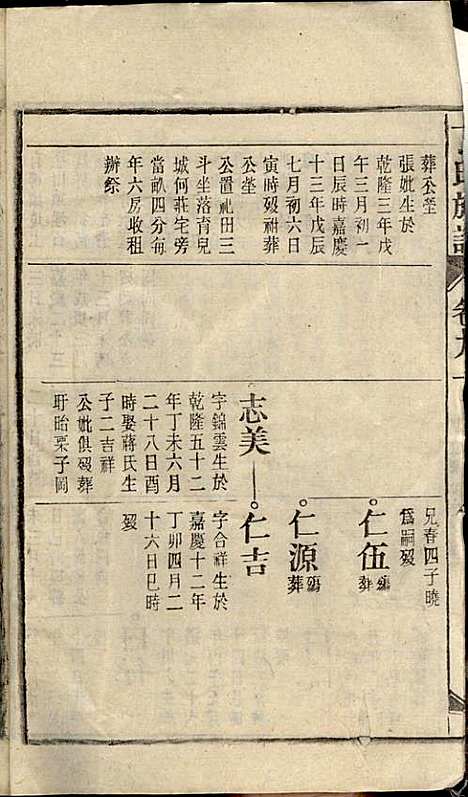 氏族譜
卷九
葬公塋
張妣生於
乾隆三年戊
年三月初一
日辰時嘉慶
十三年戊辰
七月初六日
寅時歿祔葬
公塋
公置祀田三
斗坐落育兒
城何莊宅旁
當畝四分每
年六房收租
辦祭
志美
字錦雲生於
乾隆五十二
年丁未六月
二十八日酉
時娶蔣氏生
子二吉祥
公妣俱歿葬
盱眙栗子岡
兄春四子曉
爲嗣歿
仁伍
葬
仁源
葬
仁吉
字合祥生於
嘉慶十二年
丁卯四月二
十六日巳時
歿